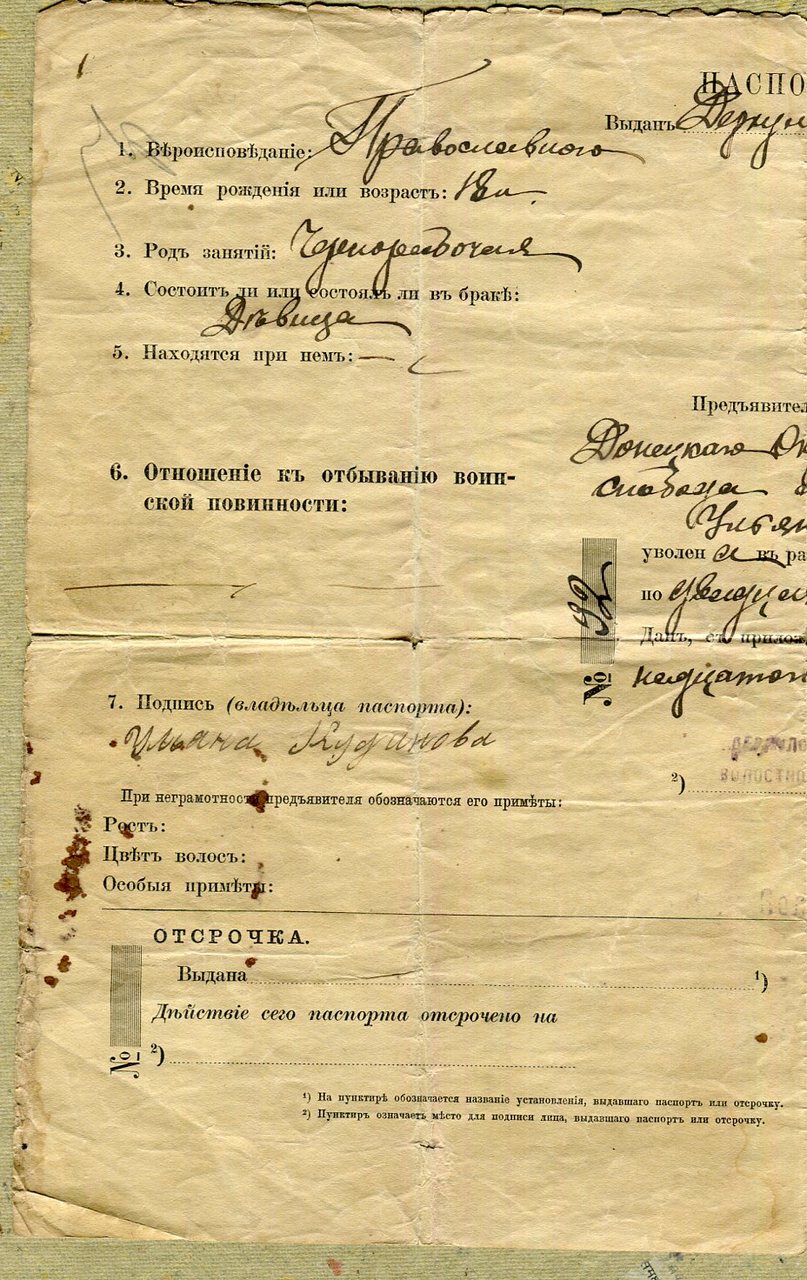 ПАСПО
Выданъ Деркул
1. Вѣроисповѣданіе: Православного
2. Время рожденія или возрастъ: 18 л.
3. Родъ занятій: Чернорабочая
4. Состоитъ ли или состоялъ ли въ бракѣ:
Дѣвица
5. Находятся при немъ: —
Предъявител
Донецкаго Ок
6. Отношеніе къ отбыванію воин-
слобода
ской повинности:
Ульян
уволен а въ ра
№ 32
по двадца
Данъ, съ прилож
надцатого
7. Подпись (владѣльца паспорта):
Ульяна Кудинова
²)
При неграмотности предъявителя обозначаются его примѣты:
Ростъ:
Цвѣтъ волосъ:
Особыя примѣты:
ОТСРОЧКА.
Выдана ¹)
Дѣйствіе сего паспорта отсрочено на
№ ²)
¹) На пунктирѣ обозначается названіе установленія, выдавшаго паспортъ или отсрочку.
²) Пунктиръ означаетъ мѣсто для подписи лица, выдавшаго паспортъ или отсрочку.